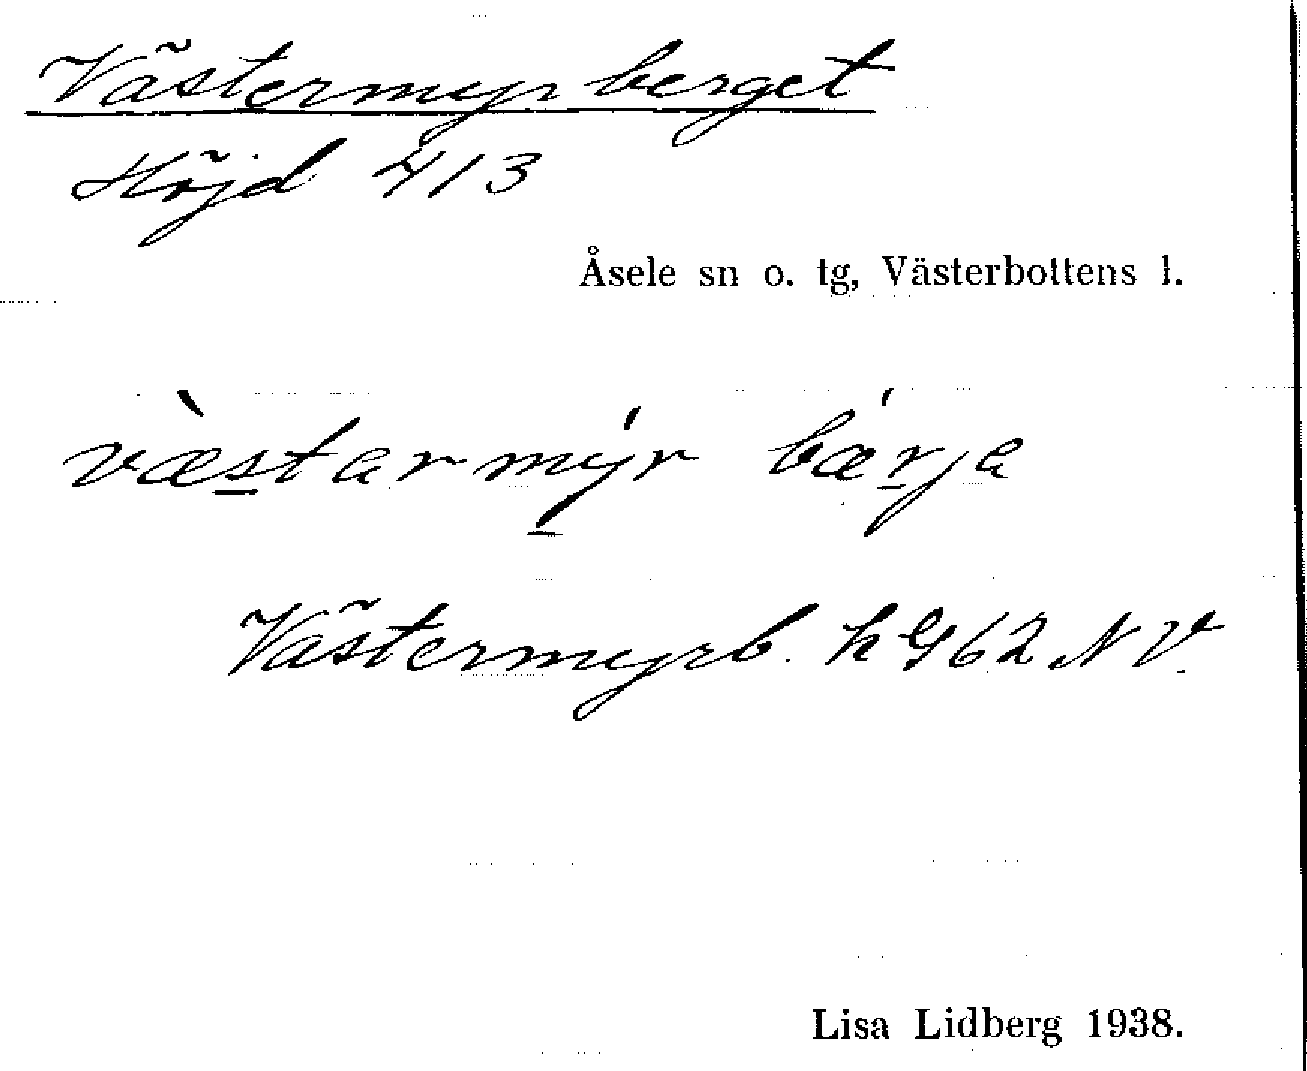 Västermyrberget
Höjd 413
Åsele sn o. tg, Västerbottens l.
væ̀starmýr bǽrja
Västermyrb. h G 62 NV.
Lisa Lidberg 1938.